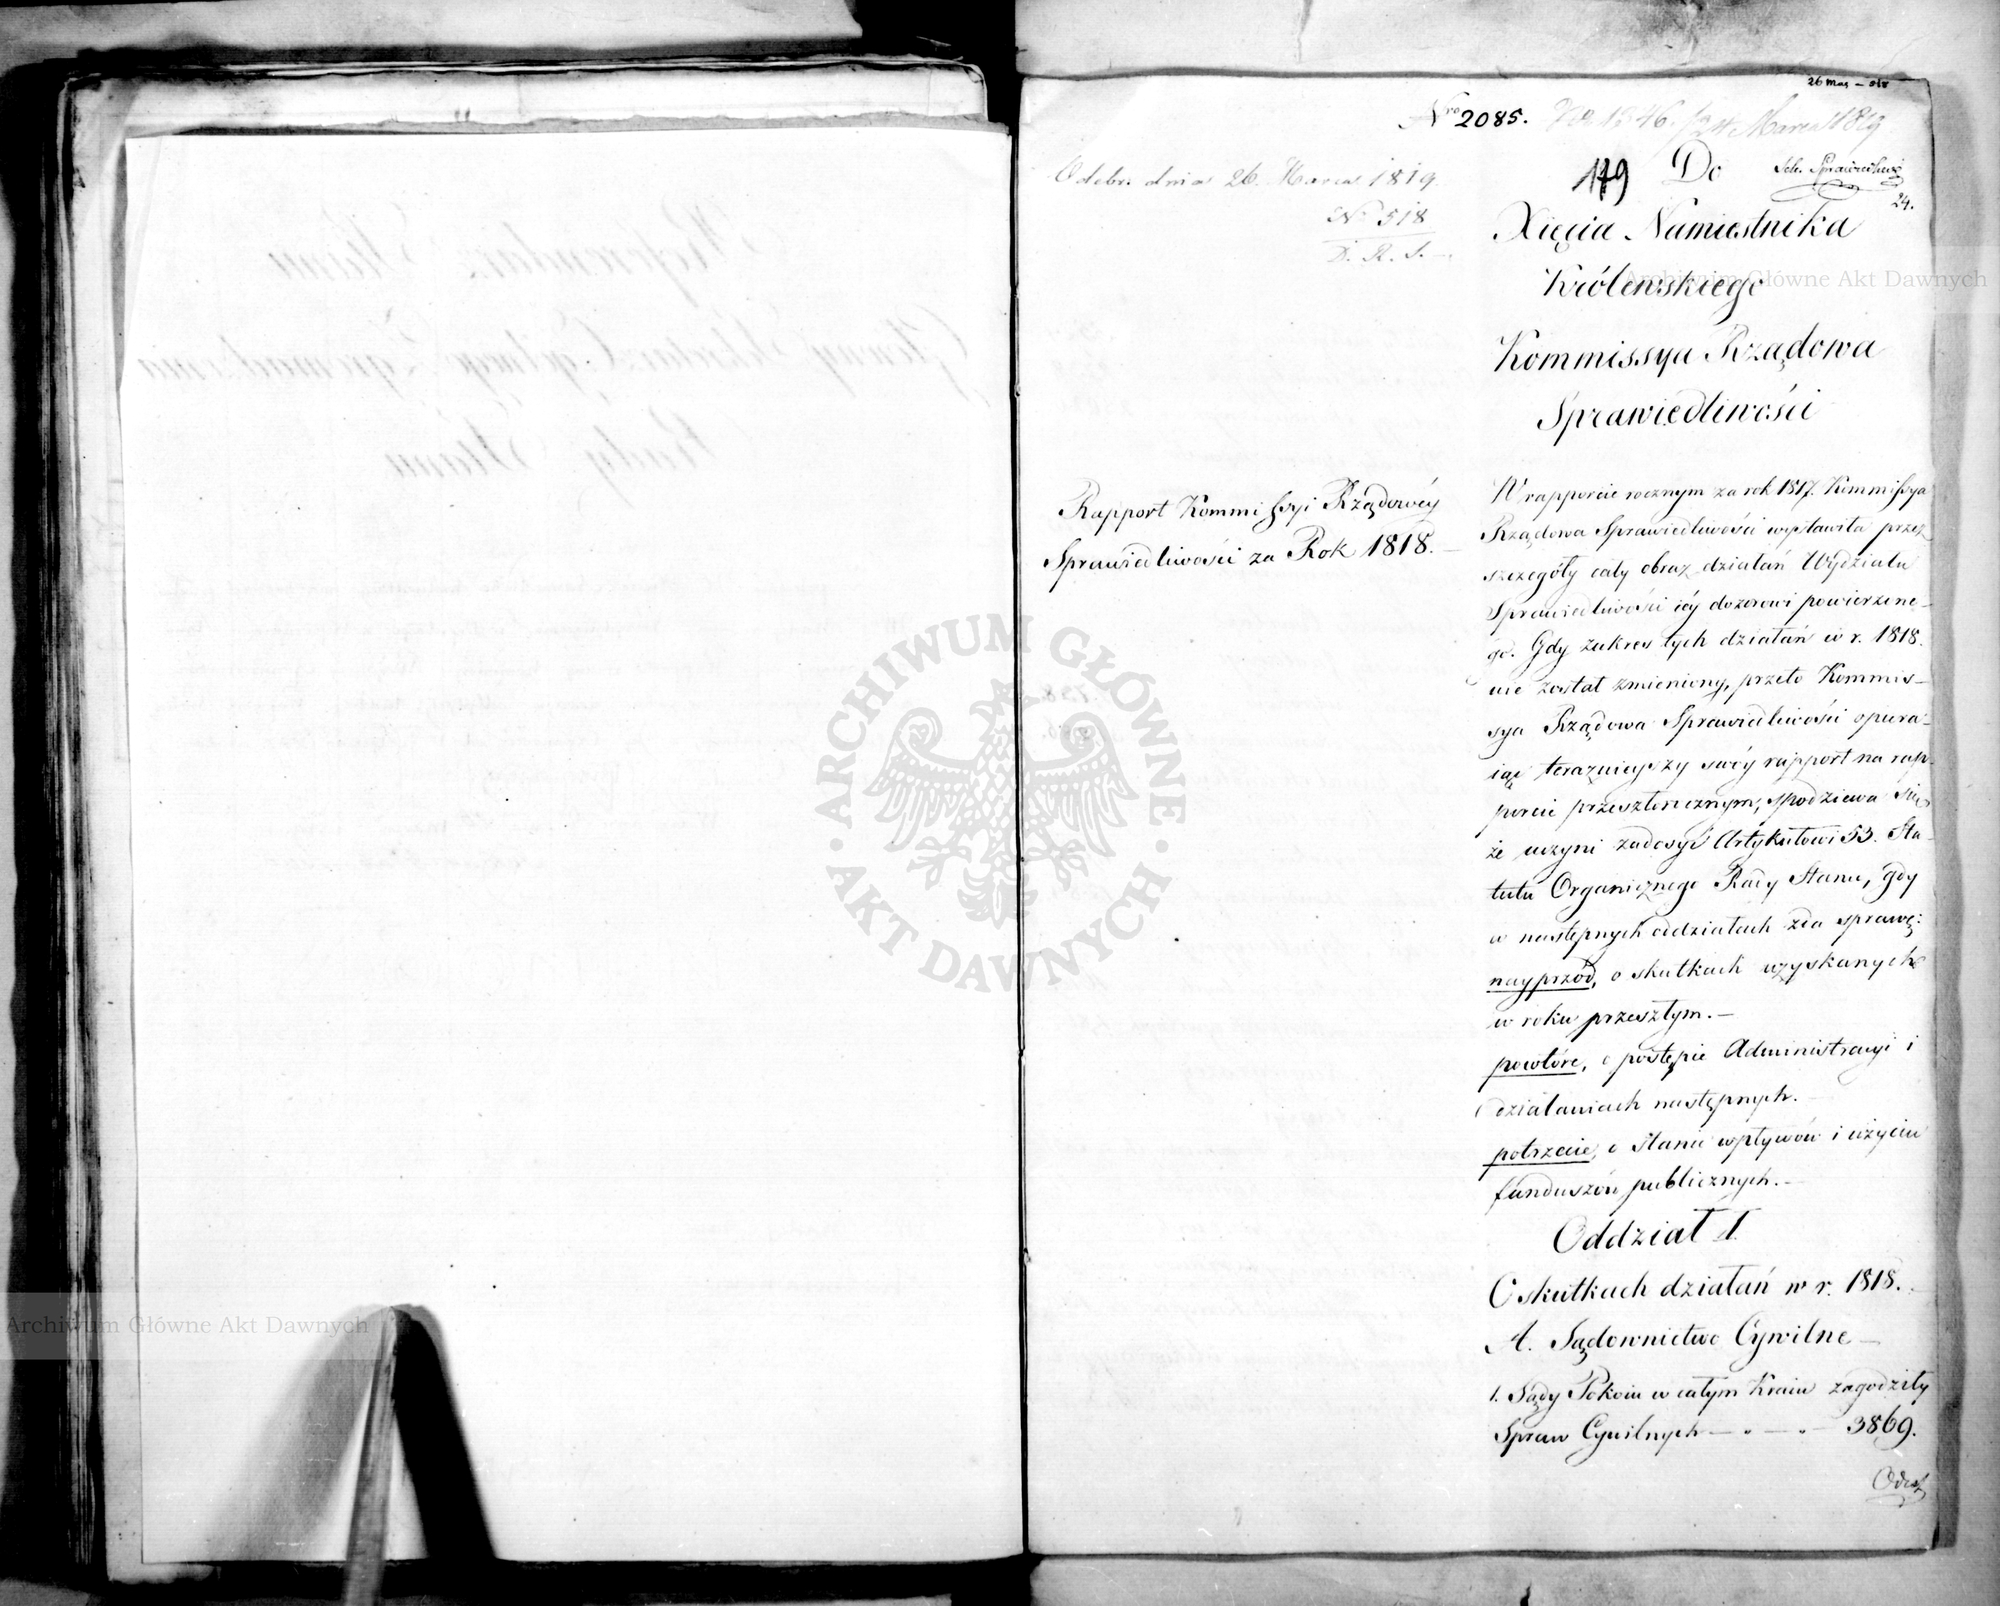 26 Mar
Nro 2085. No 1546. / 24 Marca 1819
Odebr. dnia 26. Marca 1819.
No 518
D. R. S.
179 Do
24.
Xięcia Namiestnika
Królewskiego
Kommissya Rządowa
Sprawiedliwości
Rapport Kommissyi Rządowéy
Sprawiedliwości za Rok 1818.
W rapporcie rocznym za rok 1817. Kommissya
Rządowa Sprawiedliwości wystawiła przez
szczegóły cały obraz działań Wydziału
Sprawiedliwości iéy dozorowi powierzone-
go. Gdy zakres tych działań w r. 1818.
nie został zmieniony, przeto Kommis-
sya Rządowa Sprawiedliwości opiera-
iąc teraznieyszy swóy rapport na rap-
porcie przeszłorocznym, spodziewa się
że uczyni zadosyć Artykułowi 53. Sta-
tutu Organicznego Rady Stanu, gdy
w następnych oddziałach zda sprawę:
nayprzód, o skutkach uzyskanych
w roku przeszłym.—
powtóre, o postępie Administracyi i
działaniach następnych.—
potrzecie, o stanie wpływów i użyciu
funduszów publicznych.—
Oddział I.
O skutkach działań w r. 1818.
A. Sądownictwo Cywilne—
1. Sądy Pokoiu w całym Kraiu zagodziły
Spraw Cywilnych — „ — „ — 3869.
Archiwum Główne Akt Dawnych
ARCHIWUM GŁÓWNE
AKT DAWNYCH
Archiwum Główne Akt Dawnych